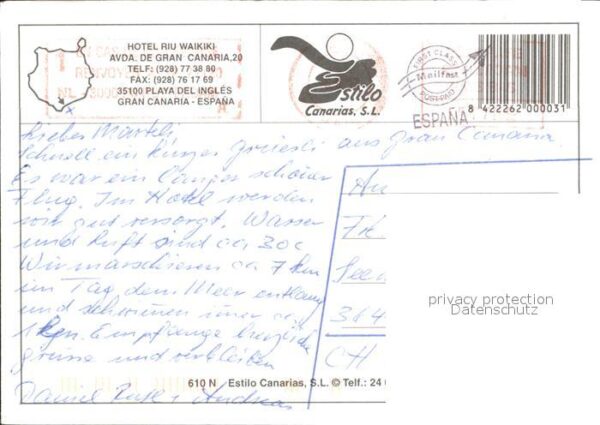 HOTEL RIU WAIKIKI
AVDA. DE GRAN CANARIA,20
TELF: (928) 77 38 80
FAX: (928) 76 17 69
35100 PLAYA DEL INGLÉS
GRAN CANARIA - ESPAÑA
Estilo
Canarias, S.L.
FIRST CLASS
Mailfast
POST-PAID
ESPAÑA
8 422262 000031
Liebes
Schnell ein kurzer aus gran Canaria.
Es war ein langer schöner
Flug. Im Hotel werden
wir gut versorgt. Wasser
und Luft sind ca 30c
Wir marschieren ca 7 km
im Tag dem Meer entlang
und schwimmen ca.
1 Empfange herzliche
grüsse und verbleiben
Daniel Andreas
An
Fr
See
364
CH
privacy protection
Datenschutz
610 N Estilo Canarias, S.L. © Telf.: 24